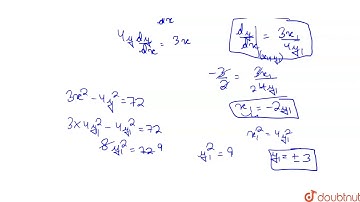 dx
4y dy/dx = 3x
dy/dx|(x₁,y₁) = 3x₁/4y₁
-3/2 = 3x₁/24y₁
x₁ = -2y₁
3x² - 4y² = 72
3×4y₁² - 4y₁² = 72
8y₁² = 72 9
x₁² = 4y₁²
y₁² = 9
y₁ = ± 3
doubtnut